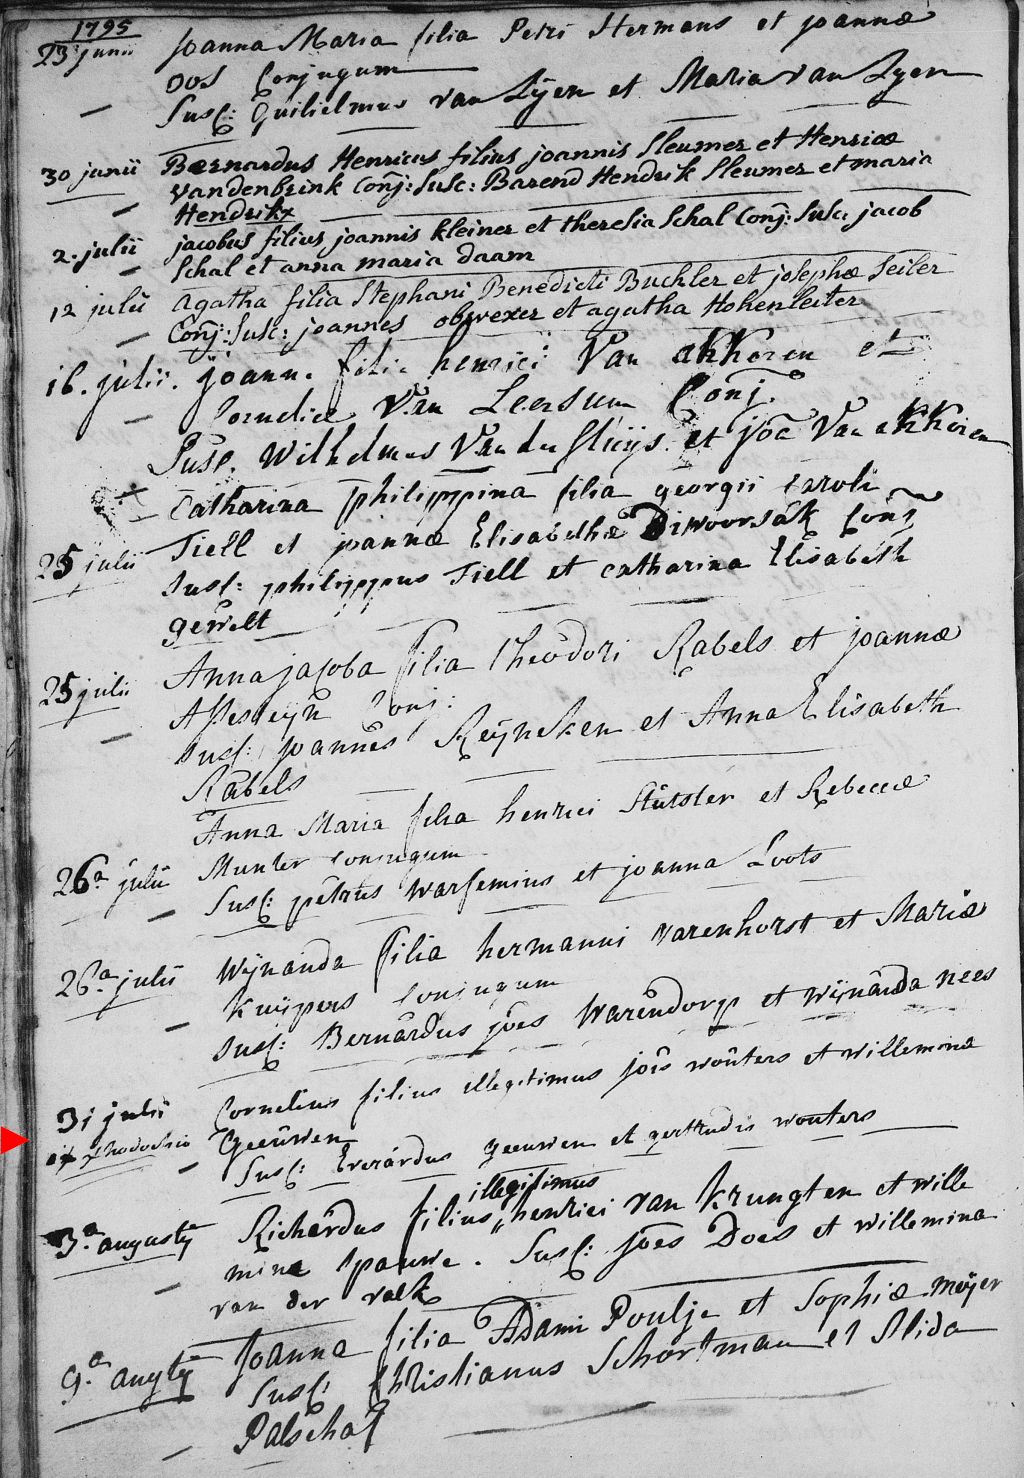 1795
23 junii Joanna Maria filia Petri Hermans et joannæ
Oos Conjugum
Susc: Guilielmus van Lÿen et Maria van Lyen
30 junii Bernardus Henricus filius joannis Sleumer et Henricæ
vandenbrink Conj: Susc: Barend Hendrik Sleumer et maria
Hendrikx
2. julii jacobus filius joannis kleiner et theresia Schal Conj: Susc: jacob
Schal et anna maria daam
12 julii agatha filia Stephani Benedicti Buchler et josephæ Seiler
Conj: Susc: joannes obwexer et agatha Hohenleiter
16. julii. joann. filia henrici Van akkoren et
Corneliæ Van Leersum Conj.
Susc. Wilhelmus Van der Sluijs. et joã Van akkoren
Catharina philippina filia georgii Caroli
25 julii Tiell et joannæ Elisabethæ Diwoorsák Conj
Susc: philippus Tiell et catharina Elisabeth
gewelt
25 julii Anna jacoba filia Theodori Rabels et joannæ
Assesteyn Conj:
Susc: joannes Reÿneken et Anna Elisabeth
Rabels
Anna Maria filia henrici Stutster et Rebeccæ
26a julii Munter conjugum
Susc: petrus warsemius et joanna Loots
26a julii Wÿnanda filia hermanni varenhorst et Mariæ
Kuijpers Conjugum
Susc: Bernardus jões Warendorp et wijnanda nees
31 julii Cornelius filius illegitimus jois woûters et willeminæ
Geeûwen
Susc: Everardus geeuwen et gertrudis wouters
illegitimus
3a augusty Richardus filius henrici van Krungten et wille
minæ Spauwe. Susc: jões Does et willemina
van der valk
9.a augty Joanna filia Adami Poulje et Sophiæ meÿer
Susc: Christianus Schortman et Alida
Palschaf